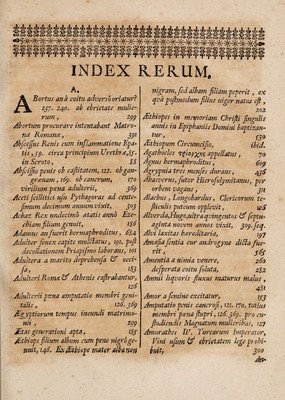 INDEX RERUM.
A,
ABortus an à coitu adverso oriatur?
237. 240. ab ebrietate mulie-
rum, 299
Abortum procurare intentabant Matro-
næ Romanæ, 391
Abscessus Renis cum inflammatione Epa-
tis, 59. circa principium Urethræ, 51.
in Scroto, 88
Abscissio penis ob castitatem, 122. ob gan-
grænam, 169. ob cancrum, 170
virilium pœna adulterii, 369
Aceti scillitici usu Pythagoras ad cente-
simum decimum annum vixit, 303
Achaz Rex undecimo ætatis anno Eze-
chiam filium genuit, 186
Adamus an fuerit hermaphroditus, 614
Adulter senex capite mulctatus, 191. post
decollationem Priapismo laborans, 101
Adultera à marito deprehensa & occi-
sa, 183
Adulteri Romæ & Athenis castrabantur,
126
Adulterii pœna amputatio membri geni-
talis, 126. 369
Ægyptiorum tempus ineundi matrimo-
nii, 299
Ætas generationi apta, 185
Æthiops filium album cum pene nigro ge-
nuit, 146. Ex Æthiope mater album non
nigram, sed albam filiam peperit, ex
quâ postmodum filius niger natus est,
202
Æthiopes in memoriam Christi singulis
annis in Epiphaniis Domini baptizan-
tur, 550
Æthiopum Circumcisio, ibid.
Agathocles appellatus, 70
Agnus hermaphroditus, 605
Ægyptia tres menses durans, 436
Albaverus, futor Hierosolymitanus, per
orbem vagans, 311
Alarbus, Longobardus, Clericorum te-
sticulis putcum opplevit, 165
Alverda, Hugo, ultra quingentos & septu-
aginta novem annos vixit, 309. seq.
Alvi laxitas hereditaria, 97
Amasia sentia cur androgyna dicta fue-
rit, 565
Amentia à nimia venere, 260
desperata coitu soluta, 282
Amnii liquoris fluxus maturus malus,
481
Amor a femina excitatur, 153
Amputatio penis cancrosi, 121. 170. totius
membri pœna stupri, 126. 369. pro cu-
stodiendis Magnatum mulieribus, 127
Amurathes IV. Turcarum Imperator,
Vini usum & ebrietatem lege prohi-
buit, 300